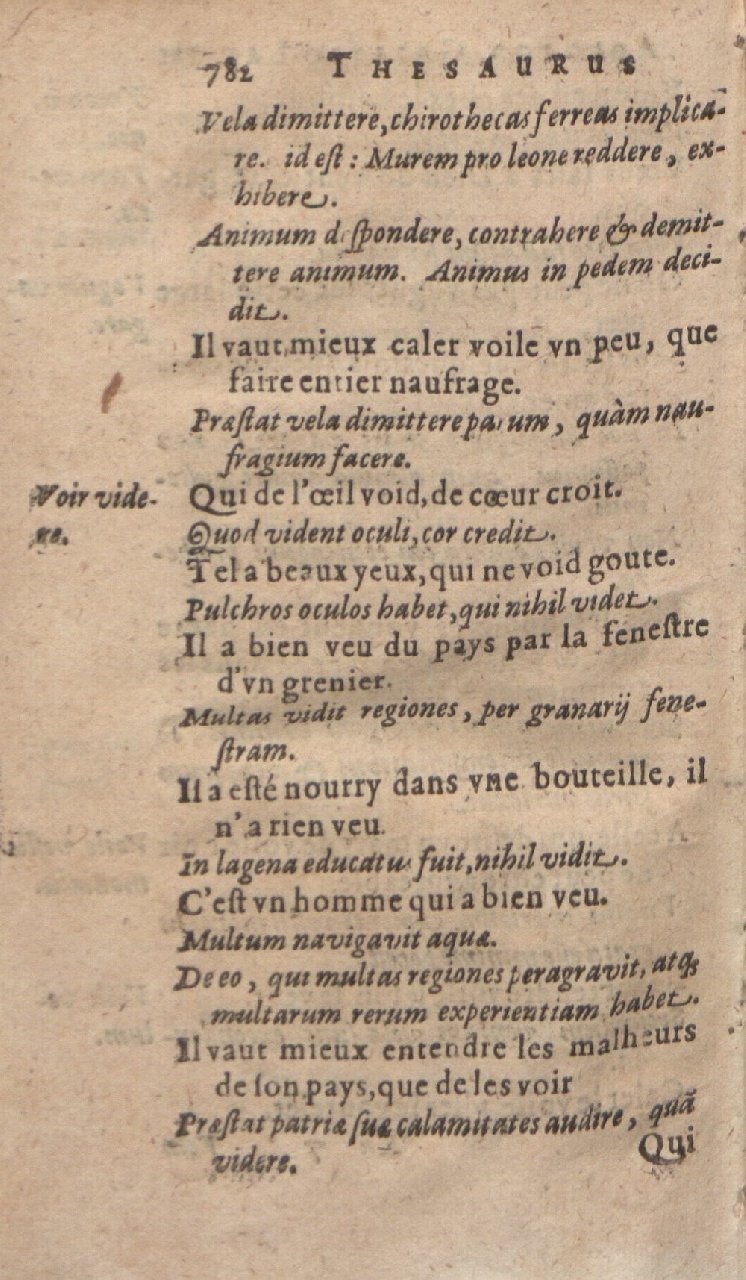 782 THESAURUS
Vela dimittere, chirothecas ferreas implica-
re. id est : Murem pro leone reddere, ex-
hibere.
Animum dispondere, contrahere & demit-
tere animum. Animus in pedem deci-
dit.
Il vaut mieux caler voile vn peu, que
faire entier naufrage.
Præstat vela dimittere parum, quàm nau-
fragium facere.
Voir vide-
re.
Qui de l'œil void, de cœur croit.
Quod vident oculi, cor credit.
Tel a beaux yeux, qui ne void goute.
Pulchros oculos habet, qui nihil videt.
Il a bien veu du pays par la fenestre
d'vn grenier.
Multas vidit regiones, per granarij fene-
stram.
Il a esté nourry dans vne bouteille, il
n'a rien veu.
In lagena educatus fuit, nihil vidit.
C'est vn homme qui a bien veu.
Multum navigavit aquæ.
De eo, qui multas regiones peragravit, atq;
multarum rerum experientiam habet.
Il vaut mieux entendre les malheurs
de son pays, que de les voir
Præstat patriæ suæ calamitates audire, quã
videre.
Qui